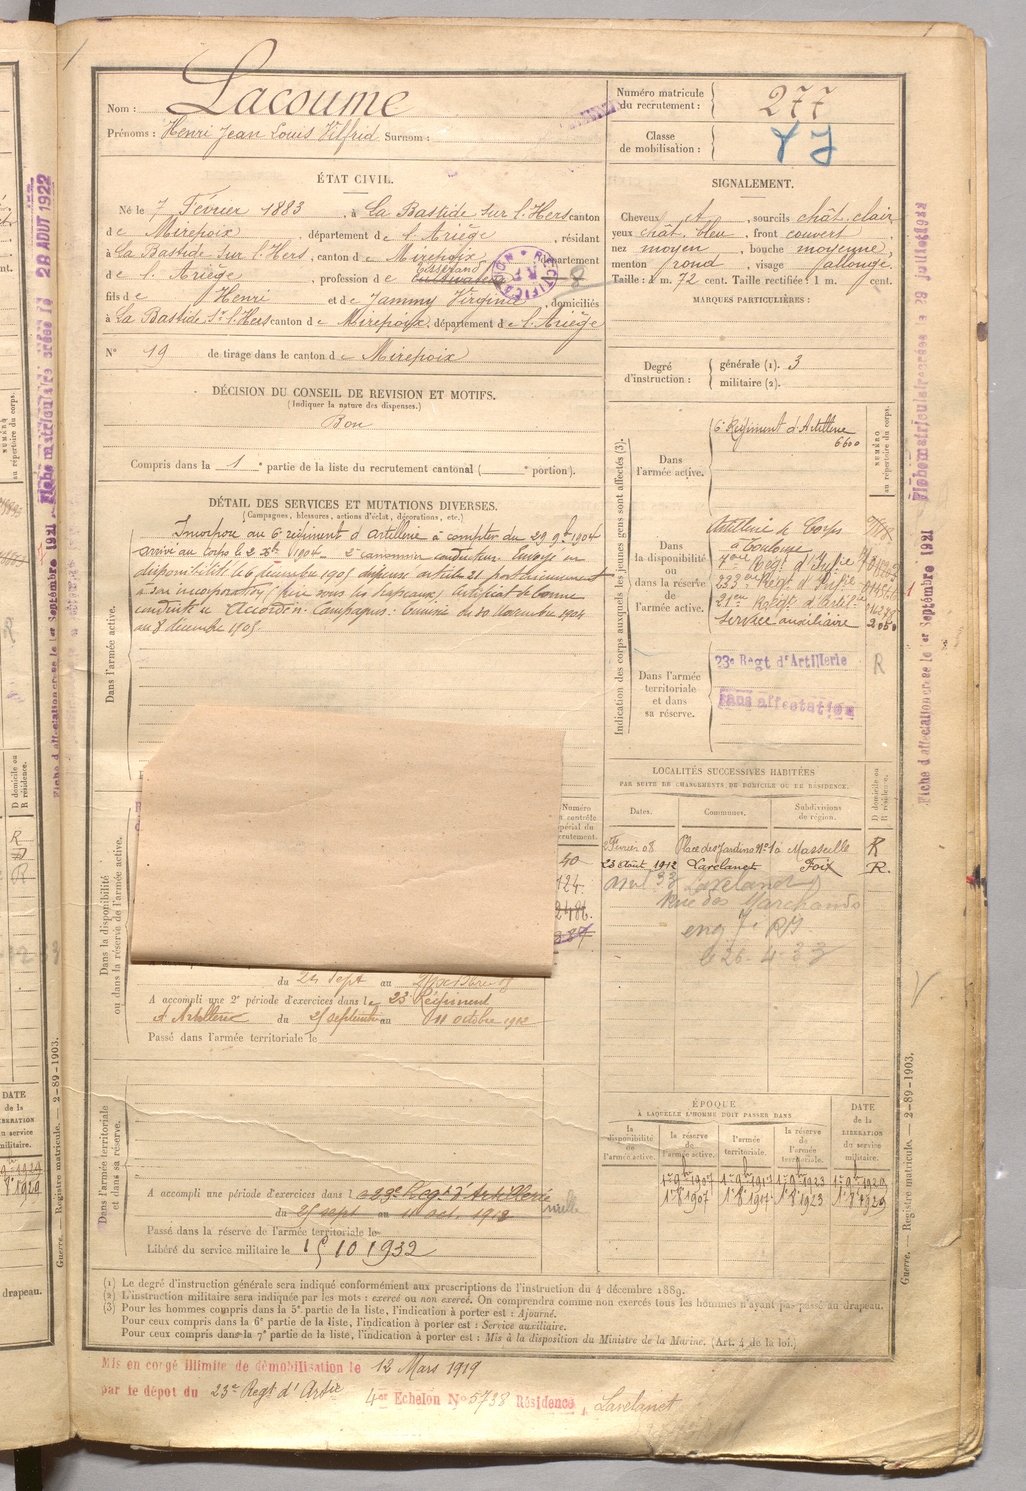 Nom : Lacoume
Prénoms : Henri Jean Louis Vilfrid Surnom :
Numéro matricule
du recrutement :
277
Classe
de mobilisation :
ÉTAT CIVIL.
Né le 7 Février 1883, à La Bastide sur l'Hers canton
de Mirepoix, département de l'Ariège, résidant
à La Bastide sur l'Hers, canton de Mirepoix, département
de l'Ariège, profession de Tisserand cultivateur
fils de Henri et de Jammy Virginie, domiciliés
à La Bastide sr l'Hers canton de Mirepoix, département de l'Ariège
N° 19 de tirage dans le canton de Mirepoix
SIGNALEMENT.
Cheveux et, sourcils chât. clair,
yeux chât. bleu, front couvert
nez moyen, bouche moyenne,
menton rond, visage allongé.
Taille : 1 m. 72 cent. Taille rectifiée : 1 m. cent.
MARQUES PARTICULIÈRES :
Degré
d'instruction :
générale (1). 3
militaire (2).
DÉCISION DU CONSEIL DE REVISION ET MOTIFS.
(Indiquer la nature des dispenses.)
Bon
Compris dans la 1e partie de la liste du recrutement cantonal ( e portion).
DÉTAIL DES SERVICES ET MUTATIONS DIVERSES.
(Campagnes, blessures, actions d'éclat, décorations, etc.)
Incorporé au 6e régiment d'artillerie à compter du 29 9bre 1904
arrivé au corps le 2 Xbre 1904. 2e canonnier conducteur. Envoyé en
disponibilité le 6 décembre 1905 dispensé article 21 postérieurement
à son incorporation (frère sous les drapeaux) Certificat de bonne
conduite Accordé. Campagnes : Tunisie du 30 novembre 1904
au 8 décembre 1905.
Dans l'armée active.
Indication des corps auxquels les jeunes gens sont affectés (3).
NUMÉRO
au répertoire du corps.
Dans
l'armée active.
6e Régiment d'Artillerie
6600
Dans
la disponibilité
ou
dans la réserve
de
l'armée active.
Artillerie de Corps
à Toulouse
Service auxiliaire 2050
Dans l'armée
territoriale
et dans
sa réserve.
23e Regt d'Artillerie
R
sans affectation
LOCALITÉS SUCCESSIVES HABITÉES
PAR SUITE DE CHANGEMENTS DE DOMICILE OU DE RÉSIDENCE.
Dates.
Communes.
Subdivisions
de région.
D domicile ou
R résidence.
Février 08 Place des Jardins N°1 à Marseille R
23 août 1912 Lavelanet Foix R.
avril 33 Lavelanet
Rue des Marchands
le 26-4-33
Dans la disponibilité
ou dans la réserve de l'armée active.
Numéro
40
124.
2486.
du 24 Sept au
A accompli une 2e période d'exercices dans le 23 Régiment
d'Artillerie du 25 septembre au 11 octobre 1912
Passé dans l'armée territoriale le
ÉPOQUE
À LAQUELLE L'HOMME DOIT PASSER DANS
la
disponibilité
de
l'armée active.
la réserve
de
l'armée active.
l'armée
territoriale.
la réserve
de
l'armée
territoriale.
DATE
de la
LIBÉRATION
du service
militaire.
1r 9bre 1907 1r 9bre 1917 1r 9bre 1923 1r 9bre 1929
1r 8bre 1907 1r 8bre 1917 1r 8bre 1923 1r 8bre 1929
Dans l'armée territoriale
et dans sa réserve.
A accompli une période d'exercices dans le 23e Regt d'Artillerie
du 25 sept au 11 oct. 1912
nulle
Passé dans la réserve de l'armée territoriale le
Libéré du service militaire le 15 10 1932
(1) Le degré d'instruction générale sera indiqué conformément aux prescriptions de l'instruction du 4 décembre 1889.
(2) L'instruction militaire sera indiquée par les mots : exercé ou non exercé. On comprendra comme non exercés tous les hommes n'ayant pas passé au drapeau.
(3) Pour les hommes compris dans la 5e partie de la liste, l'indication à porter est : Ajourné.
Pour ceux compris dans la 6e partie de la liste, l'indication à porter est : Service auxiliaire.
Pour ceux compris dans la 7e partie de la liste, l'indication à porter est : Mis à la disposition du Ministre de la Marine. (Art. 4 de la loi.)
Mis en congé illimité de démobilisation le 12 Mars 1919
par le dépôt du 23e Regt d'Artie 4er Echelon No 5738 Résidence, Lavelanet
Guerre. — Registre matricule. — 2-89-1903.
Guerre. — Registre matricule. — 2-89-1903.
Fiche d'affectation créée le 1er Septembre 1921
Fiche matriculaire créée le 29 juillet 1922
Fiche d'affectation créée le 1er Septembre 1921
Fiche matriculaire créée le 28 AOUT 1922
DATE
de la
LIBÉRATION
du service
militaire.
drapeau.